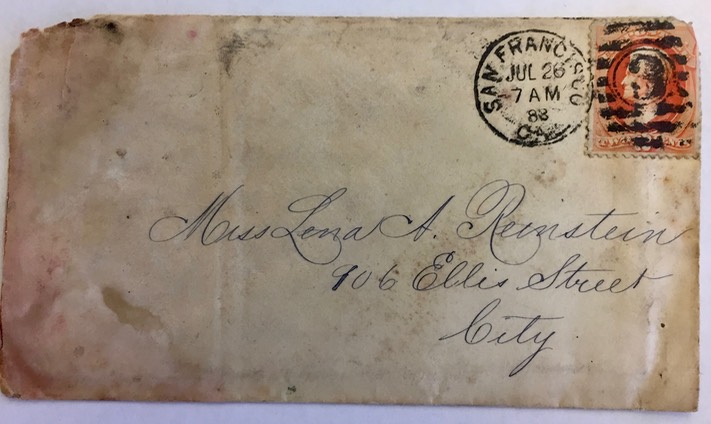 SAN FRANCISCO
JUL 26
7 AM
83
CAL.
Miss Lena A. Reinstein
906 Ellis Street
City